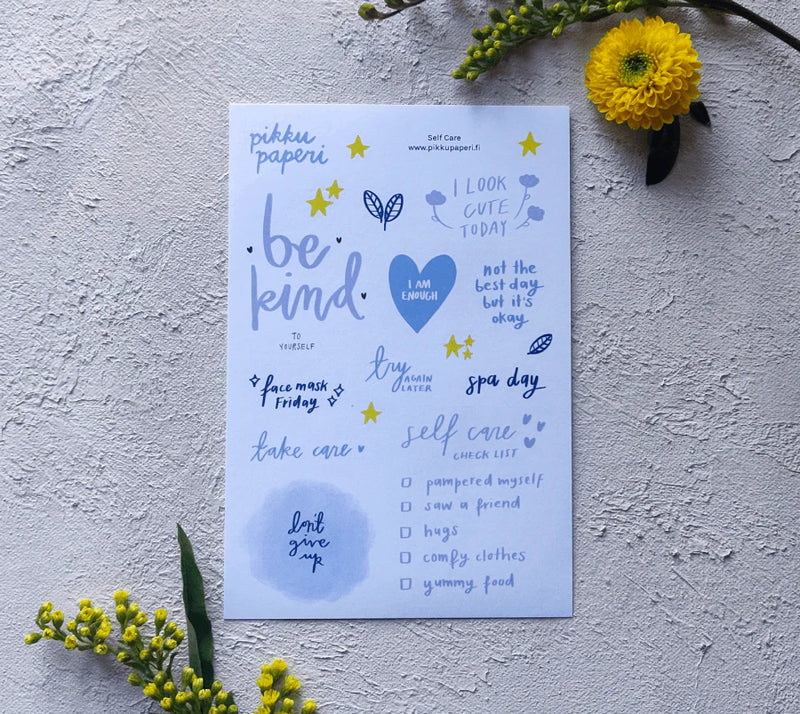 pikku
paperi
Self Care
www.pikkupaperi.fi
I LOOK
CUTE
TODAY
be
kind
TO
YOURSELF
I AM
ENOUGH
not the
best day
but it's
okay
face mask
Friday
try
AGAIN
LATER
spa day
take care
self care
CHECK LIST
pampered myself
saw a friend
hugs
comfy clothes
yummy food
don't
give
up